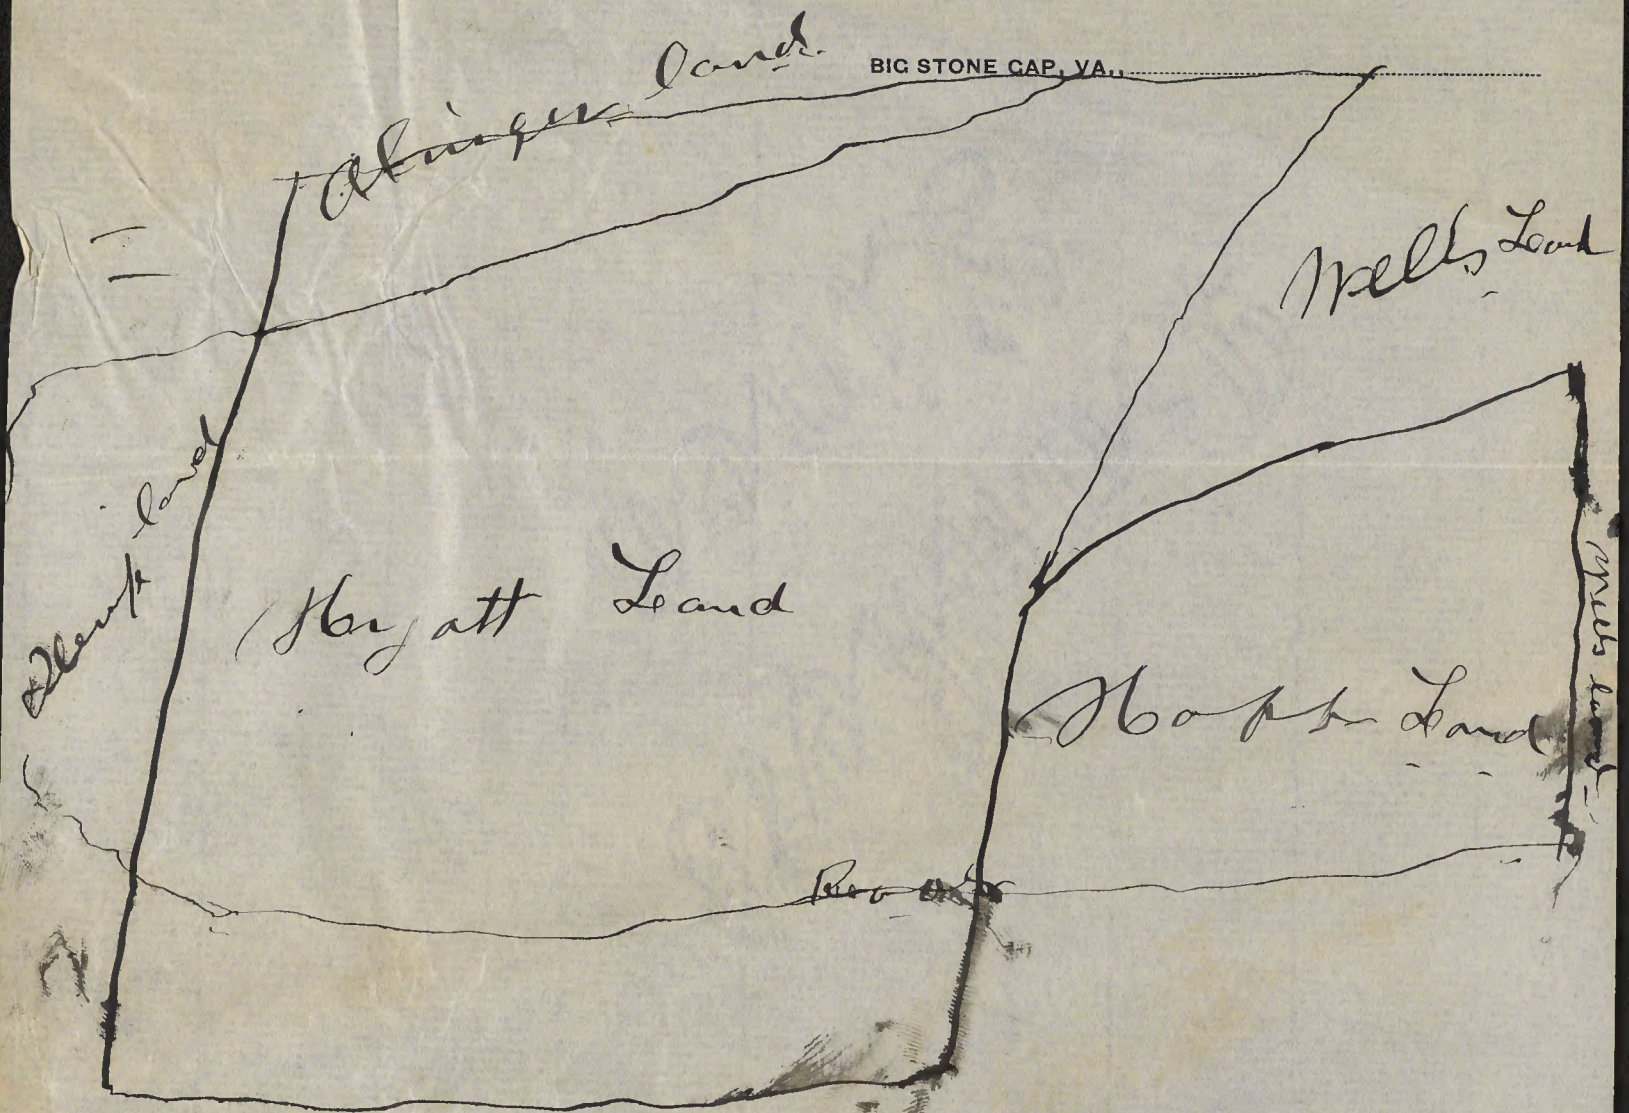 BIG STONE GAP, VA.,
Olinger land
Wells Land
Slemp land
Hyatt Land
Hopp Land
Wells land